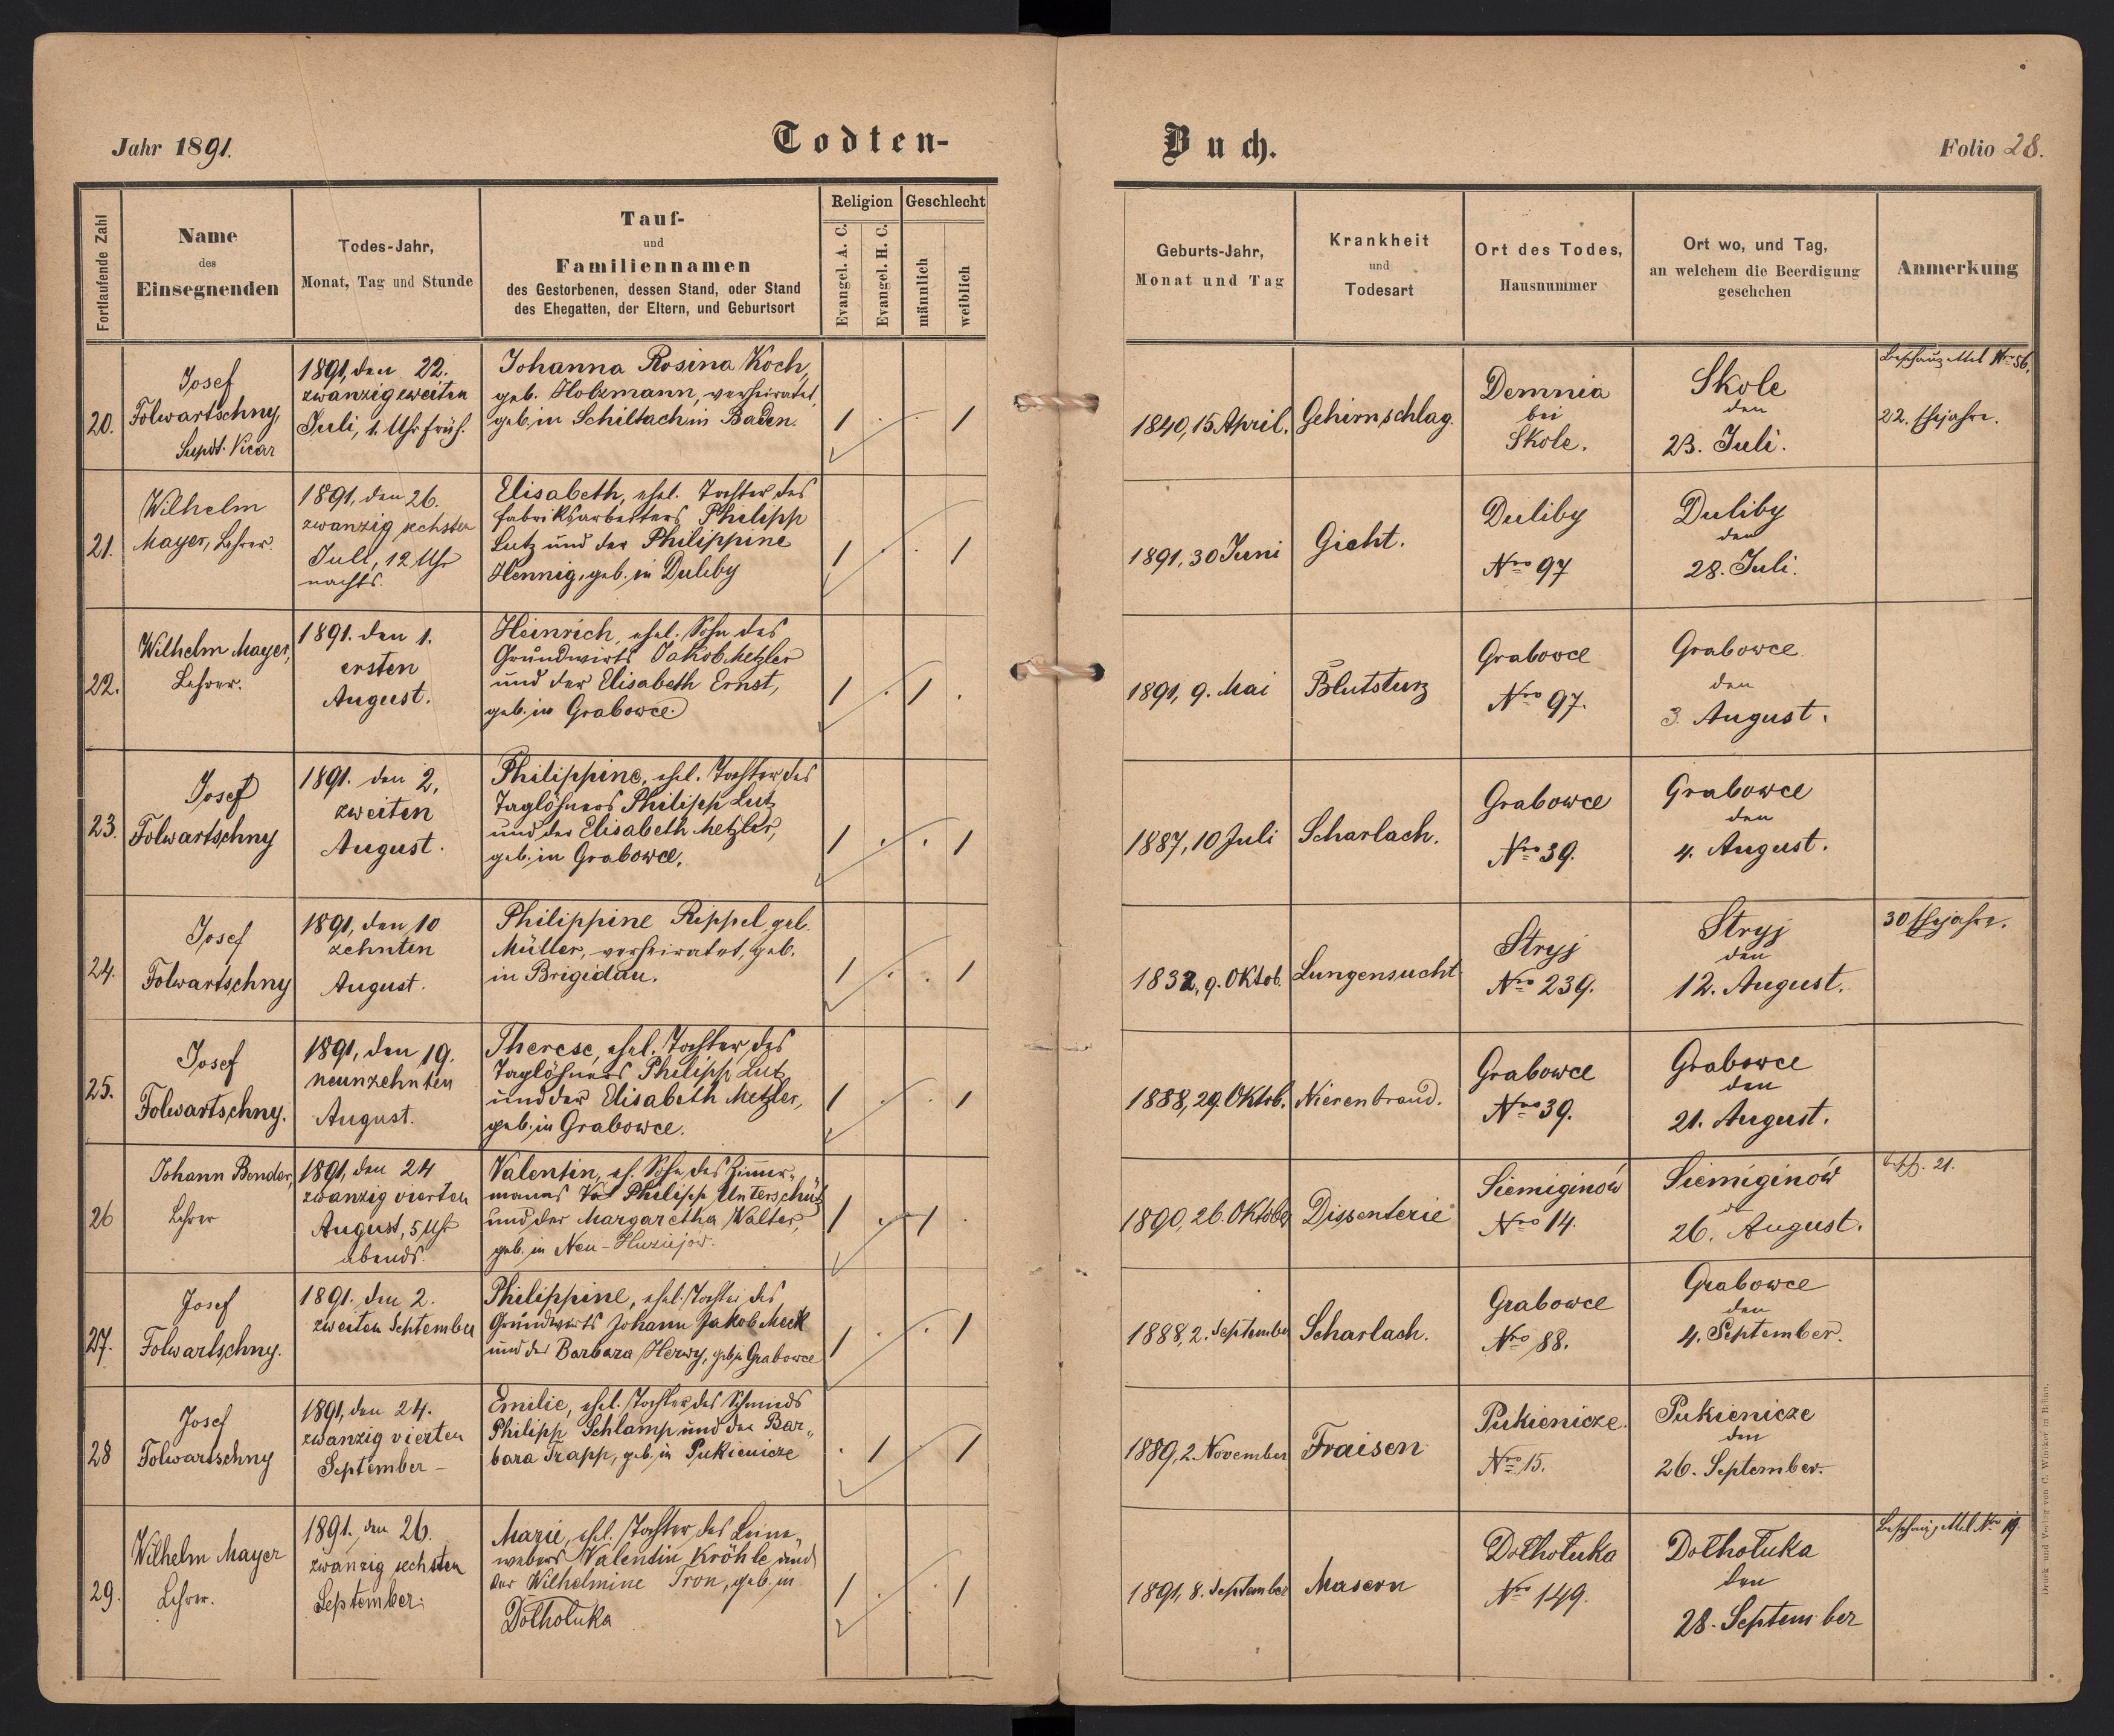 Jahr 1891.
Todten-
Fortlaufende Zahl
Name
des
Einsegnenden
Todes-Jahr,
Monat, Tag und Stunde
Tauf-
und
Familiennamen
des Gestorbenen, dessen Stand, oder Stand
des Ehegatten, der Eltern, und Geburtsort
Religion
Evangel. A. C.
Evangel. H. C.
Geschlecht
männlich
weiblich
20.
Josef
Folwartschny,
Supdt. Vicar
1891, den 22.
zwanzigzweiten
Juli, 1. Uhr früh.
Johanna Rosina Koch,
geb. Holzmann, verheiratet,
geb. in Schiltach in Baden.
21.
Wilhelm
Mayer, Lehrer.
1891, den 26.
zwanzig sechsten
Juli, 12 Uhr
nachts.
Elisabeth, ehel. Tochter des
Fabriksarbeiters Philipp
Lutz und der Philippine
Hennig, geb. in Duliby
22.
Wilhelm Mayer,
Lehrer.
1891. den 1.
ersten
August.
Heinrich, ehel. Sohn des
Grundwirts Jakob Metzler
und der Elisabeth Ernst,
geb. in Grabowce.
23.
Josef
Folwartschny
1891. den 2,
zweiten
August.
Philippine, ehel. Tochter des
Taglöhners Philipp Lutz
und der Elisabeth Metzler,
geb. in Grabowce.
24.
Josef
Folwartschny
1891, den 10
zehnten
August.
Philippine Rippel, geb.
Müller, verheiratet, geb.
in Brigidau.
25.
Josef
Folwartschny.
1891, den 19.
neunzehnten
August.
Therese, ehel. Tochter des
Taglöhners Philipp Lutz
und der Elisabeth Metzler,
geb. in Grabowce.
26
Johann Bender,
Lehrer
1891, den 24
zwanzig vierten
August, 5 Uhr
abends.
Valentin, eh. Sohn des Zimmer-
manns Philipp Unterschütz
und der Margaretha Walter,
geb. in Neu-Huziejow.
27.
Josef
Folwartschny.
1891. den 2.
zweiten September
Philippine, ehel. Tochter des
Grundwirts Johann Jakob Meck
und der Barbara Herwy, geb. in Grabowce
28
Josef
Folwartschny
1891, den 24.
zwanzig vierten
September –
Emilie, ehel. Tochter des Schmieds
Philipp Schlamp und der Bar-
bara Trapp, geb. in Pukienicze
29.
Wilhelm Mayer
Lehrer.
1891. den 26.
zwanzig sechsten
September.
Marie, ehel. Tochter des Leine-
webers Valentin Kröhle und
der Wilhelmine Tron, geb. in
Dołhołuka
Buch.
Folio 28.
Geburts-Jahr,
Monat und Tag
Krankheit
und
Todesart
Ort des Todes,
Hausnummer
Ort wo, und Tag,
an welchem die Beerdigung
geschehen
Anmerkung
1840, 15 April.
Gehirnschlag.
Demnia
bei
Skole.
Skole
den
23. Juli.
Beschauzettel Nro 56.
22. Ehejahre.
1891, 30 Juni
Gicht.
Duliby
Nro 97
Duliby
den
28. Juli.
1891, 9. Mai
Blutsturz
Grabowce
Nro 97.
Grabowce
den
3. August.
1887, 10 Juli
Scharlach.
Grabowce
Nro 39.
Grabowce
den
4. August.
1832, 9. Oktob.
Lungensucht
Stryj
Nro 239.
Stryj
den
12. August.
30 Ehejahre.
1888, 29. Oktob.
Nierenbrand.
Grabowce
Nro 39.
Grabowce
den
21. August.
1890, 26. Oktober
Dissenterie
Siemiginów
Nro 14.
Siemiginów
den
26. August.
21.
1888, 2. September
Scharlach.
Grabowce
Nro 88.
Grabowce
den
4. September.
1889, 2. November
Fraisen
Pukienicze.
Nro 15.
Pukienicze
den
26. September.
1891, 8. September
Masern
Dołhołuka
Nro 149.
Dołhołuka
den
28. September
Beschauzettel Nro 19.
Druck und Verlag von C. Winiker in Brünn.